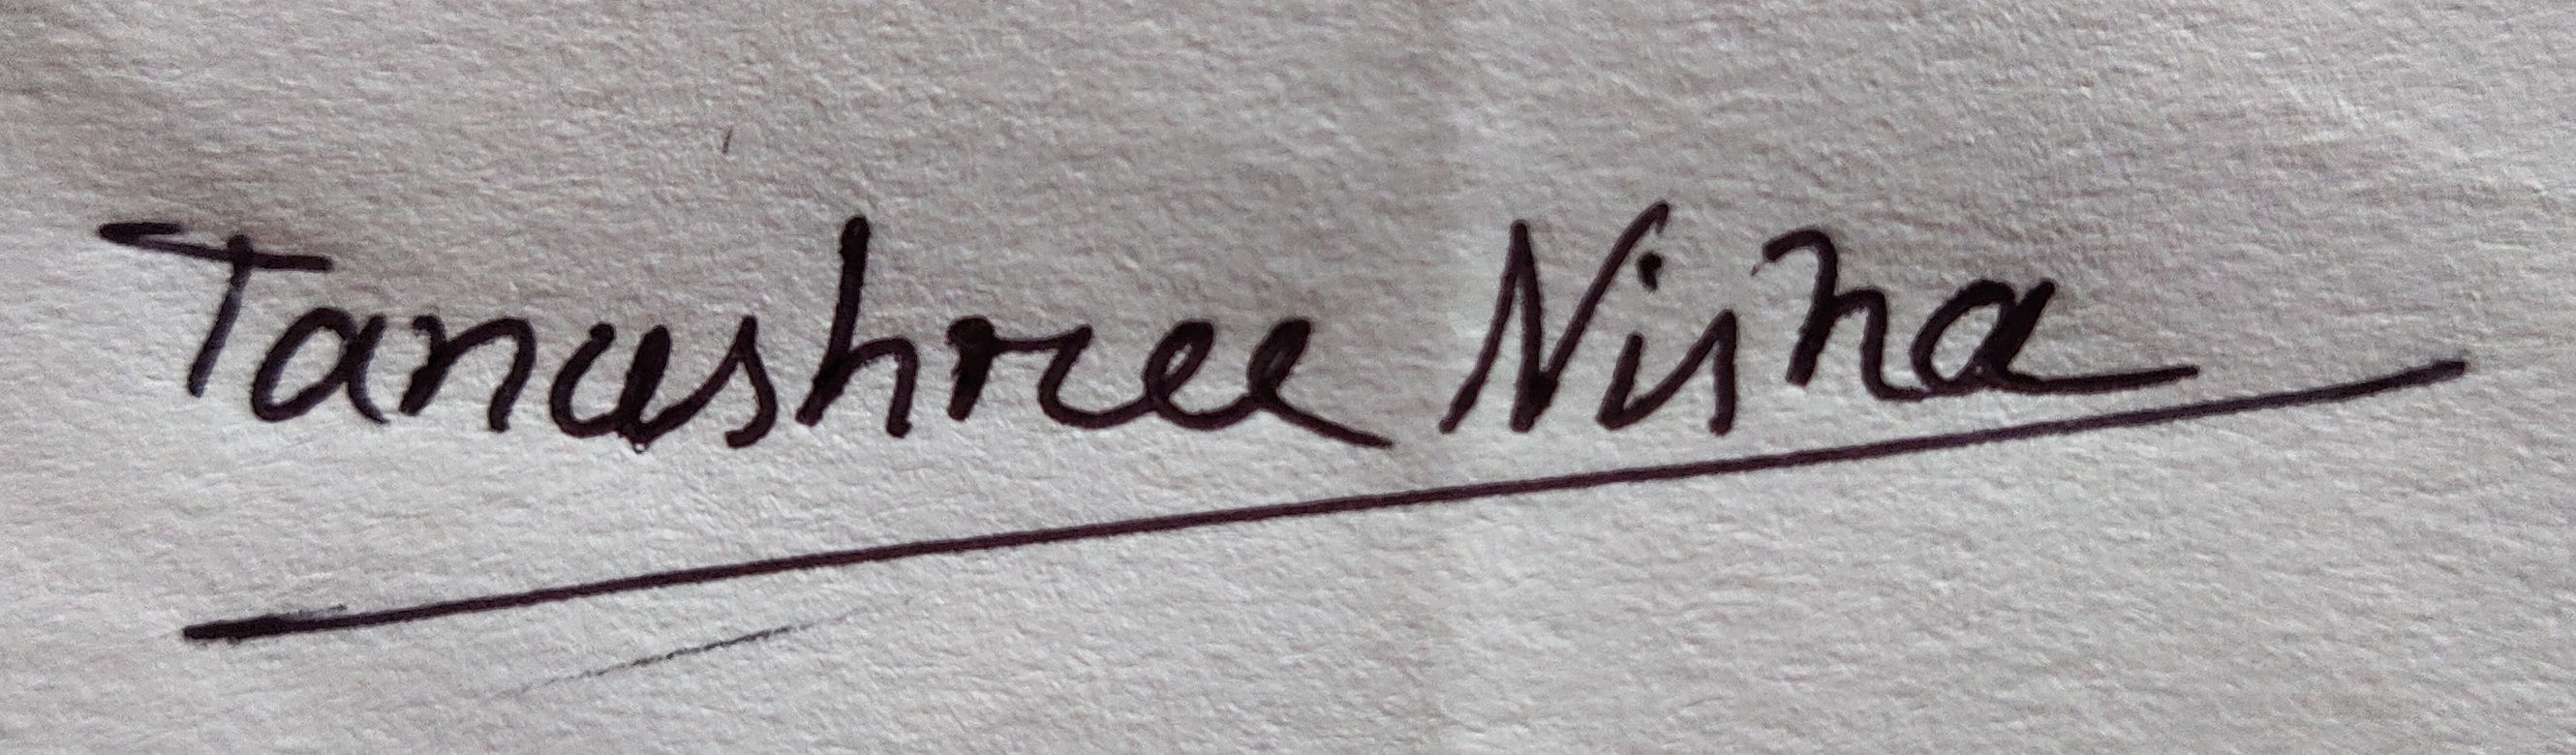 Tanushree Nisha